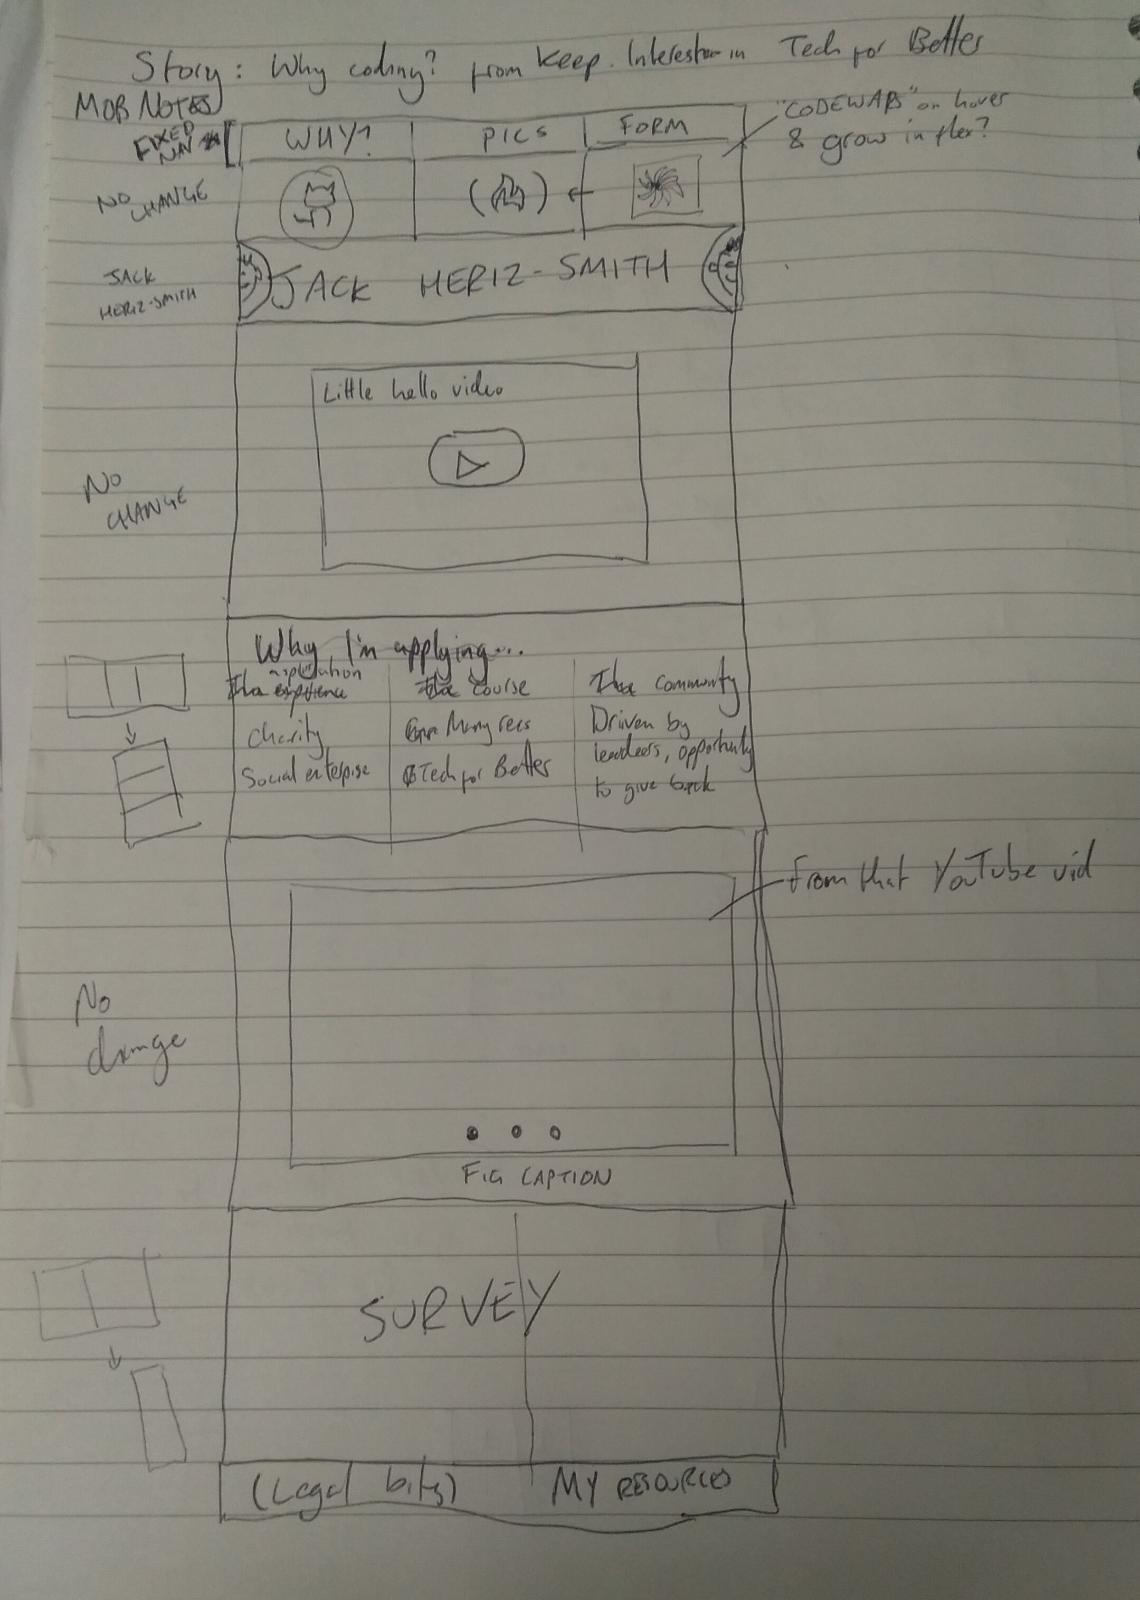 Story: Why coding? from Keep. Interest in Tech for Better
MOB NOTES
FIXED NAV
WHY?
PICS
FORM
"CODEWARS" on hover
& grow in flex?
NO
CHANGE
JACK
HERIZ-SMITH
JACK HERIZ-SMITH
Little hello video
NO
CHANGE
Why I'm applying...
application
The experience
The course
The community
Charity
Many recs
Driven by
Social enterpise
Tech for Better
leaders, opportunity
to give back
From that YouTube vid
No
change
FIG CAPTION
SURVEY
(Legal bits)
MY RESOURCES